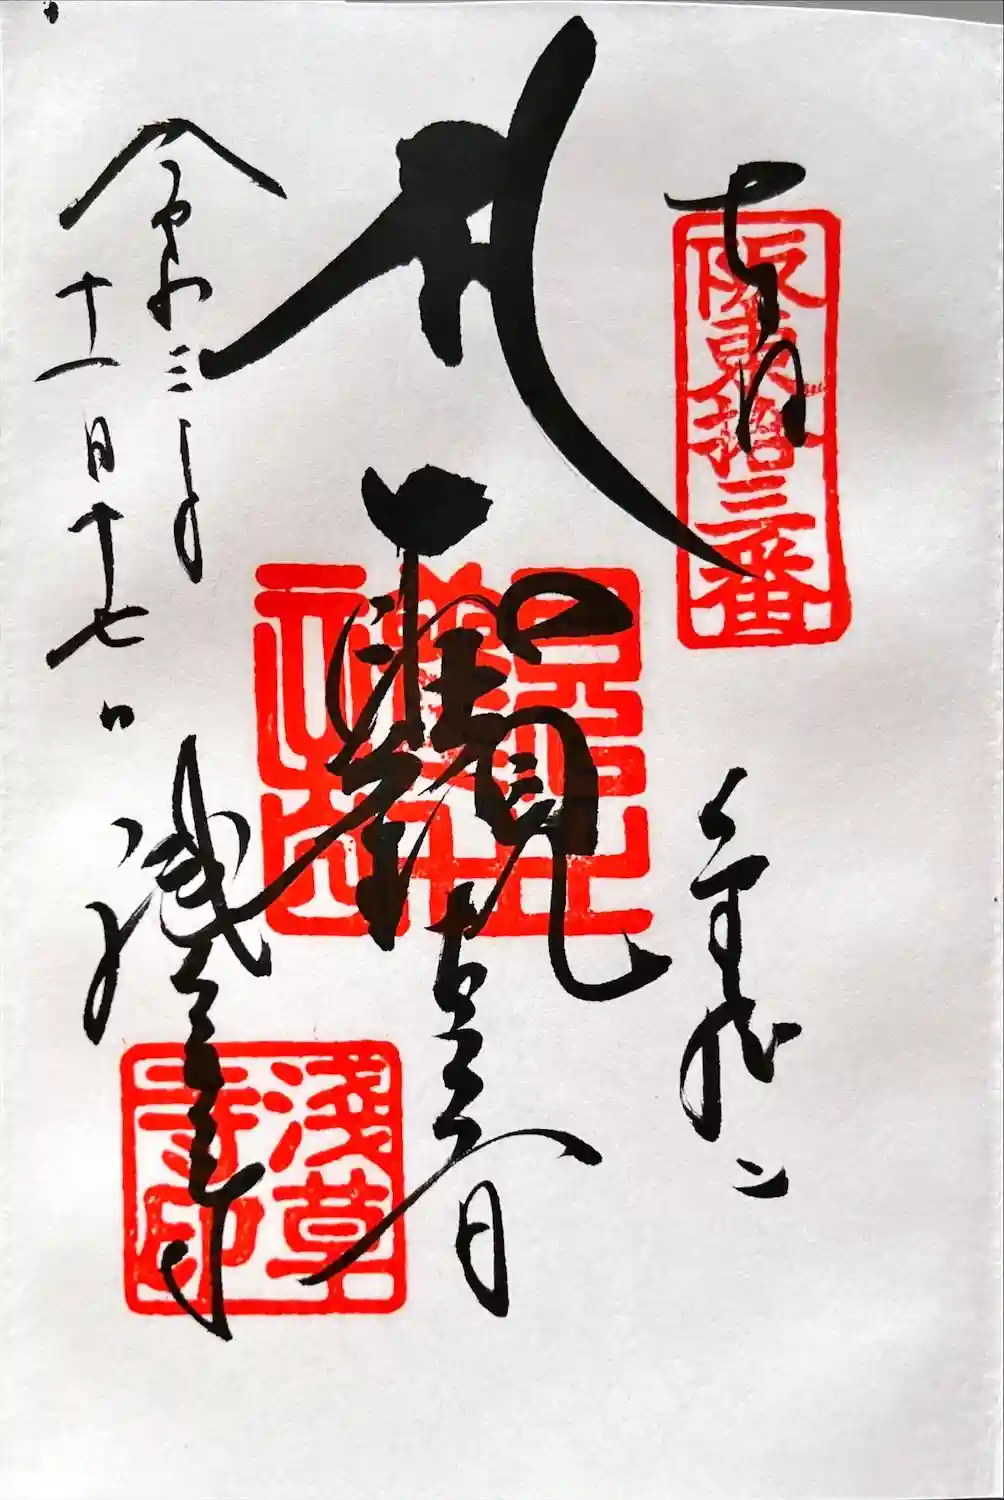 奉拝
阪東拾三番
金龍山
聖観世音
令和三年
十一月十七日
浅草寺
淺草
寺印